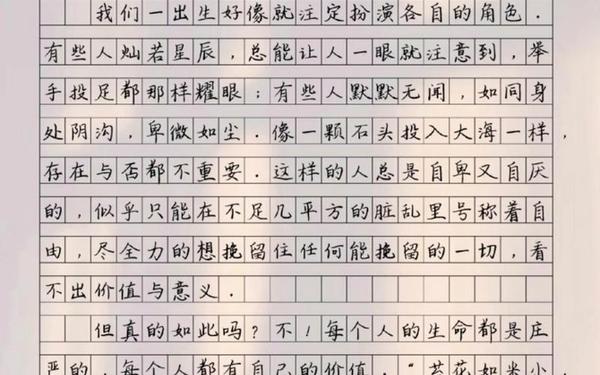 我们一出生好像就注定扮演各自的角色.
有些人灿若星辰,总能让人一眼就注意到,举
手投足都那样耀眼;有些人默默无闻,如同身
处阴沟,卑微如尘.像一颗石头投入大海一样,
存在与否都不重要.这样的人总是自卑又自厌
的,似乎只能在不足几平方的脏乱里号称着自
由,尽全力的想挽留住任何能挽留的一切,看
不出价值与意义.
但真的如此吗?不!每个人的生命都是庄
严的,每个人都有自己的价值."苔花如米小,